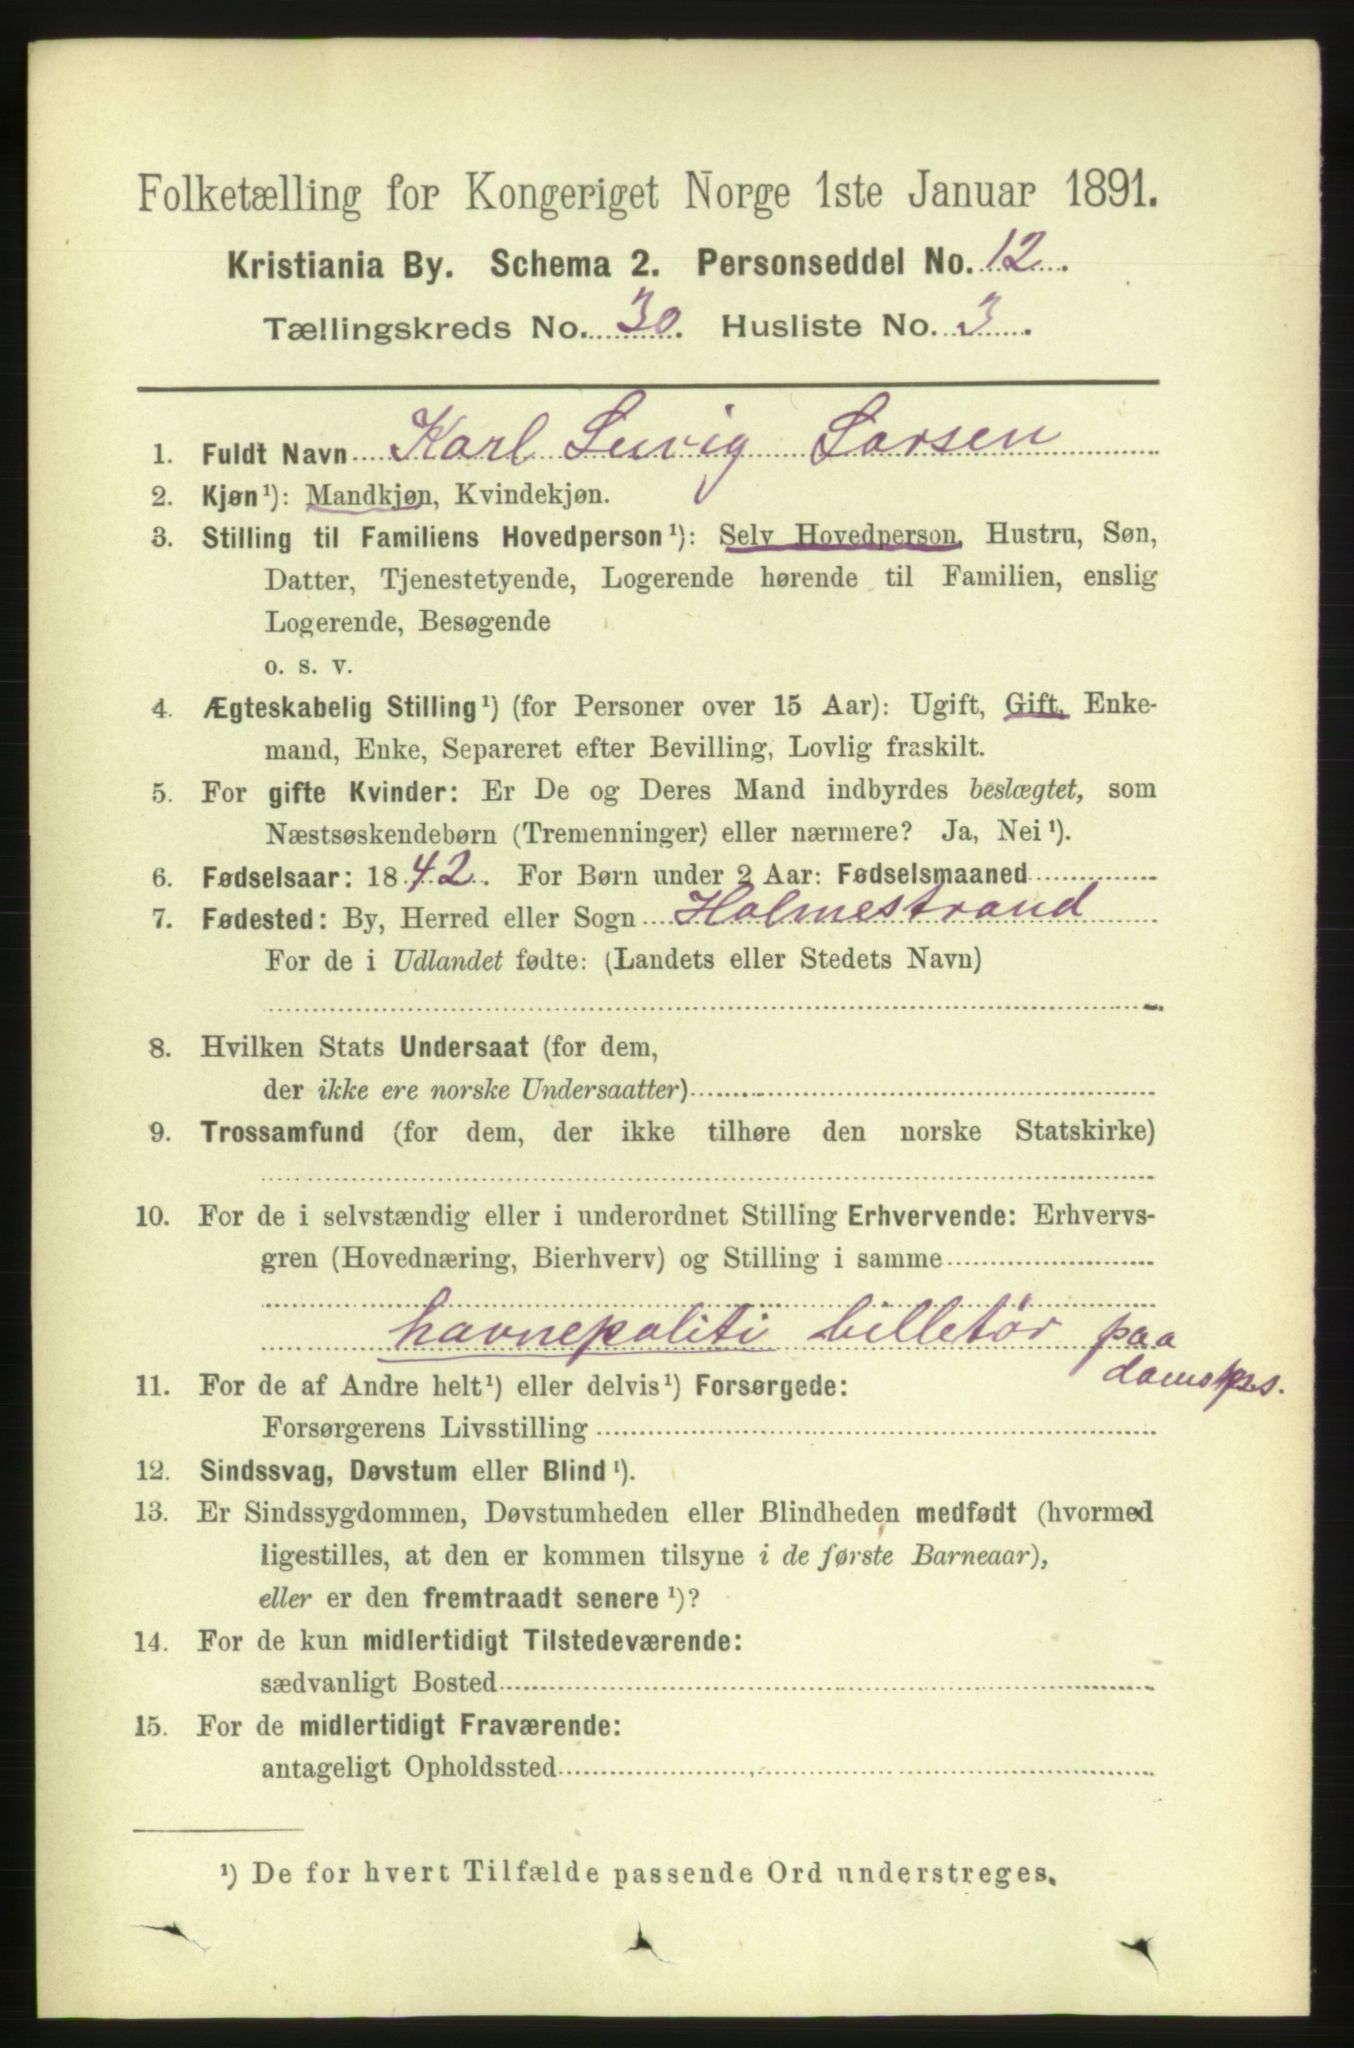 Folketælling for Kongeriget Norge 1ste Januar 1891.
Kristiania By. Schema 2. Personseddel No. 12.
Tællingskreds No. 30. Husliste No. 3.
1. Fuldt Navn Karl Luvig Larsen
2. Kjøn¹): Mandkjøn, Kvindekjøn.
3. Stilling til Familiens Hovedperson¹): Selv Hovedperson, Hustru, Søn,
Datter, Tjenestetyende, Logerende hørende til Familien, enslig
Logerende, Besøgende
o. s. v.
4. Ægteskabelig Stilling¹) (for Personer over 15 Aar): Ugift, Gift, Enke-
mand, Enke, Separeret efter Bevilling, Lovlig fraskilt.
5. For gifte Kvinder: Er De og Deres Mand indbyrdes beslægtet, som
Næstsøskendebørn (Tremenninger) eller nærmere? Ja, Nei¹).
6. Fødselsaar: 1842. For Børn under 2 Aar: Fødselsmaaned
7. Fødested: By, Herred eller Sogn Holmestrand
For de i Udlandet fødte: (Landets eller Stedets Navn)
8. Hvilken Stats Undersaat (for dem,
der ikke ere norske Undersaatter)
9. Trossamfund (for dem, der ikke tilhøre den norske Statskirke)
10. For de i selvstændig eller i underordnet Stilling Erhvervende: Erhvervs-
gren (Hovednæring, Bierhverv) og Stilling i samme
havnepoliti billetør paa
11. For de af Andre helt¹) eller delvis¹) Forsørgede:
Forsørgerens Livsstilling
12. Sindssvag, Døvstum eller Blind¹).
13. Er Sindssygdommen, Døvstumheden eller Blindheden medfødt (hvormed
ligestilles, at den er kommen tilsyne i de første Barneaar),
eller er den fremtraadt senere¹)?
14. For de kun midlertidigt Tilstedeværende:
sædvanligt Bosted
15. For de midlertidigt Fraværende:
antageligt Opholdssted
¹) De for hvert Tilfælde passende Ord understreges.